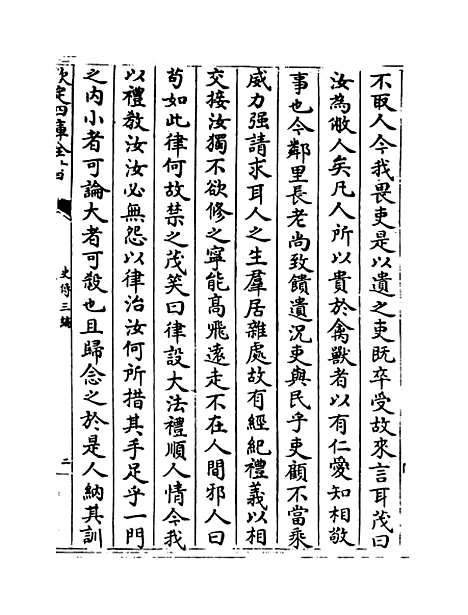 不取人今我畏吏是以遺之吏既卒受故來言耳茂曰
汝為敝人矣凡人所以貴於禽獸者以有仁愛知相敬
事也今鄰里長老尚致饋遺況吏與民乎吏顧不當乘
威力强請求耳人之生羣居雜處故有經紀禮義以相
交接汝獨不欲修之寧能高飛遠走不在人間邪人曰
苟如此律何故禁之茂笑曰律設大法禮順人情今我
以禮教汝汝必無怨以律治汝何所措其手足乎一門
之内小者可論大者可殺也且歸念之於是人納其訓
欽定四庫全書
史傳三編
二